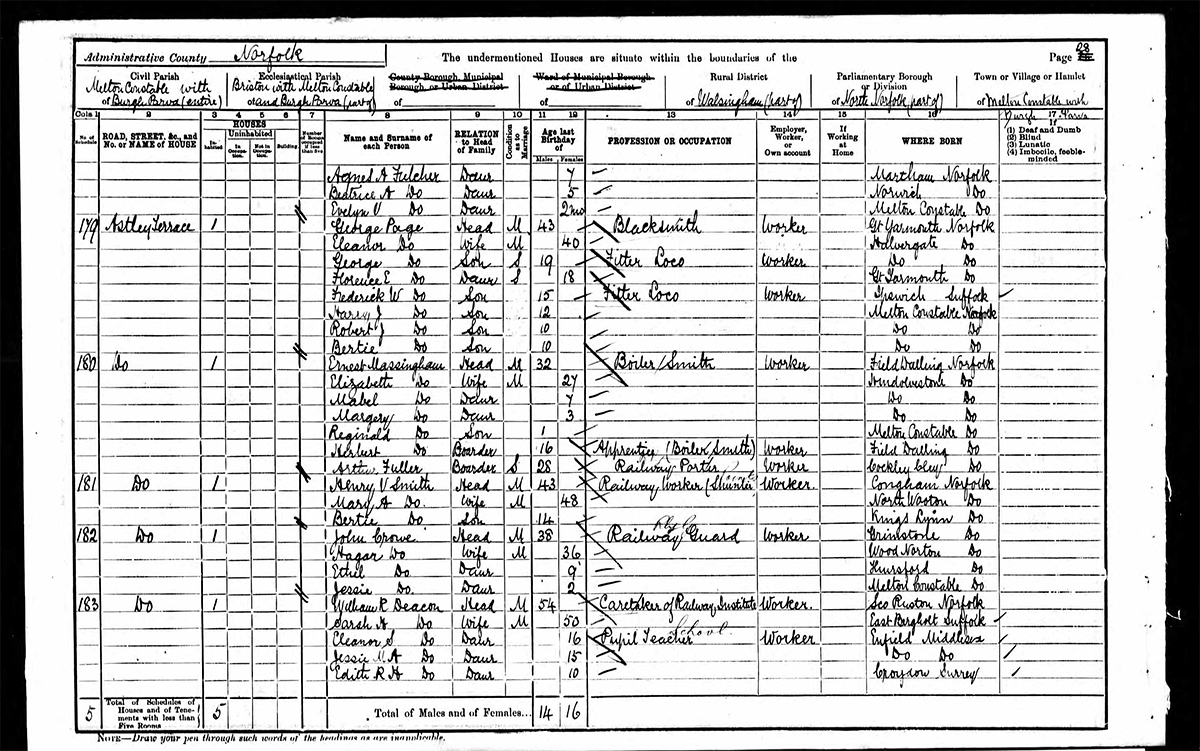 Administrative County Norfolk The undermentioned Houses are situate within the boundaries of the Page 28
Civil Parish Ecclesiastical Parish County Borough, Municipal Borough or Urban District Ward of Municipal Borough or of Urban District Rural District Parliamentary Borough or Division Town or Village or Hamlet
of Melton Constable with Burgh Parva (entire) of Briston with Melton Constable and Burgh Parva (part of) of of of Walsingham (part of) of North Norfolk (part of) of Melton Constable with Burgh Parva
Cols 1 2 3 4 5 6 7 8 9 10 11 12 13 14 15 16 17
No. of Schedule ROAD, STREET, &c., and No. or NAME of HOUSE HOUSES Inhabited Uninhabited In Occupation. Not in Occupation. Building Number of Rooms occupied if less than five Name and Surname of each Person RELATION to Head of Family Condition as to Marriage Age last Birthday of Males Females PROFESSION OR OCCUPATION Employer, Worker, or Own account If Working at Home WHERE BORN If (1) Deaf and Dumb (2) Blind (3) Lunatic (4) Imbecile, feeble-minded
Agnes A Fulcher Daur 7 Martham Norfolk
Beatrice A Do Daur 5 Norwich Do
Evelyn V Do Daur 2mo Melton Constable Do
179 Astley Terrace 1 George Page Head M 43 Blacksmith Worker Gt Yarmouth Norfolk
Eleanor Do Wife M 40 Halvergate Do
George Do Son S 19 Fitter Loco Worker Do Do
Florence E Do Daur S 18 Gt Yarmouth Do
Frederick W Do Son 15 Fitter Loco Worker Ipswich Suffolk
Harry J Do Son 12 Melton Constable Norfolk
Robert J Do Son 10 Do Do
Bertie Do Son 10 Do Do
180 Do 1 Ernest Massingham Head M 32 Boiler Smith Worker Field Dalling Norfolk
Elizabeth Do Wife M 27 Hindolvestone Do
Mabel Do Daur 7 Do Do
Margery Do Daur 3 Do Do
Reginald Do Son 1 Melton Constable Do
Herbert Do Boarder 16 Apprentice (Boiler Smith) Worker Field Dalling Do
Arthur Fuller Boarder S 28 Railway Porter Worker Cockley Cley Do
181 Do 1 Henry V Smith Head M 43 Railway Worker (Shunter) Worker. Congham Norfolk
Mary A Do. Wife M 48 North Wooton Do
Bertie Do Son 14 Kings Lynn Do
182 Do 1 John Crowe Head M 38 Railway Guard Worker Grimstone Do
Hagar Do Wife M 36 Wood Norton Do
Ethel Do Daur 9 Hinsford Do
Jessie Do. Daur 2 Melton Constable Do
183 Do 1 William R Deacon Head M 54 Caretaker of Railway Institute Worker. Sco Ruston Norfolk
Sarah A Do Wife M 50 East Bergholt Suffolk
Eleanor S Do Daur 16 Pupil Teacher School. Worker Enfield Middlesex
Jessie M A Do Daur 15 Do Do
Edith R H Do Daur 10 Croydon Surrey
5 Total of Schedules of Houses and of Tenements with less than Five Rooms 5 Total of Males and of Females... 14 16
NOTE—Draw your pen through such words of the headings as are inapplicable.